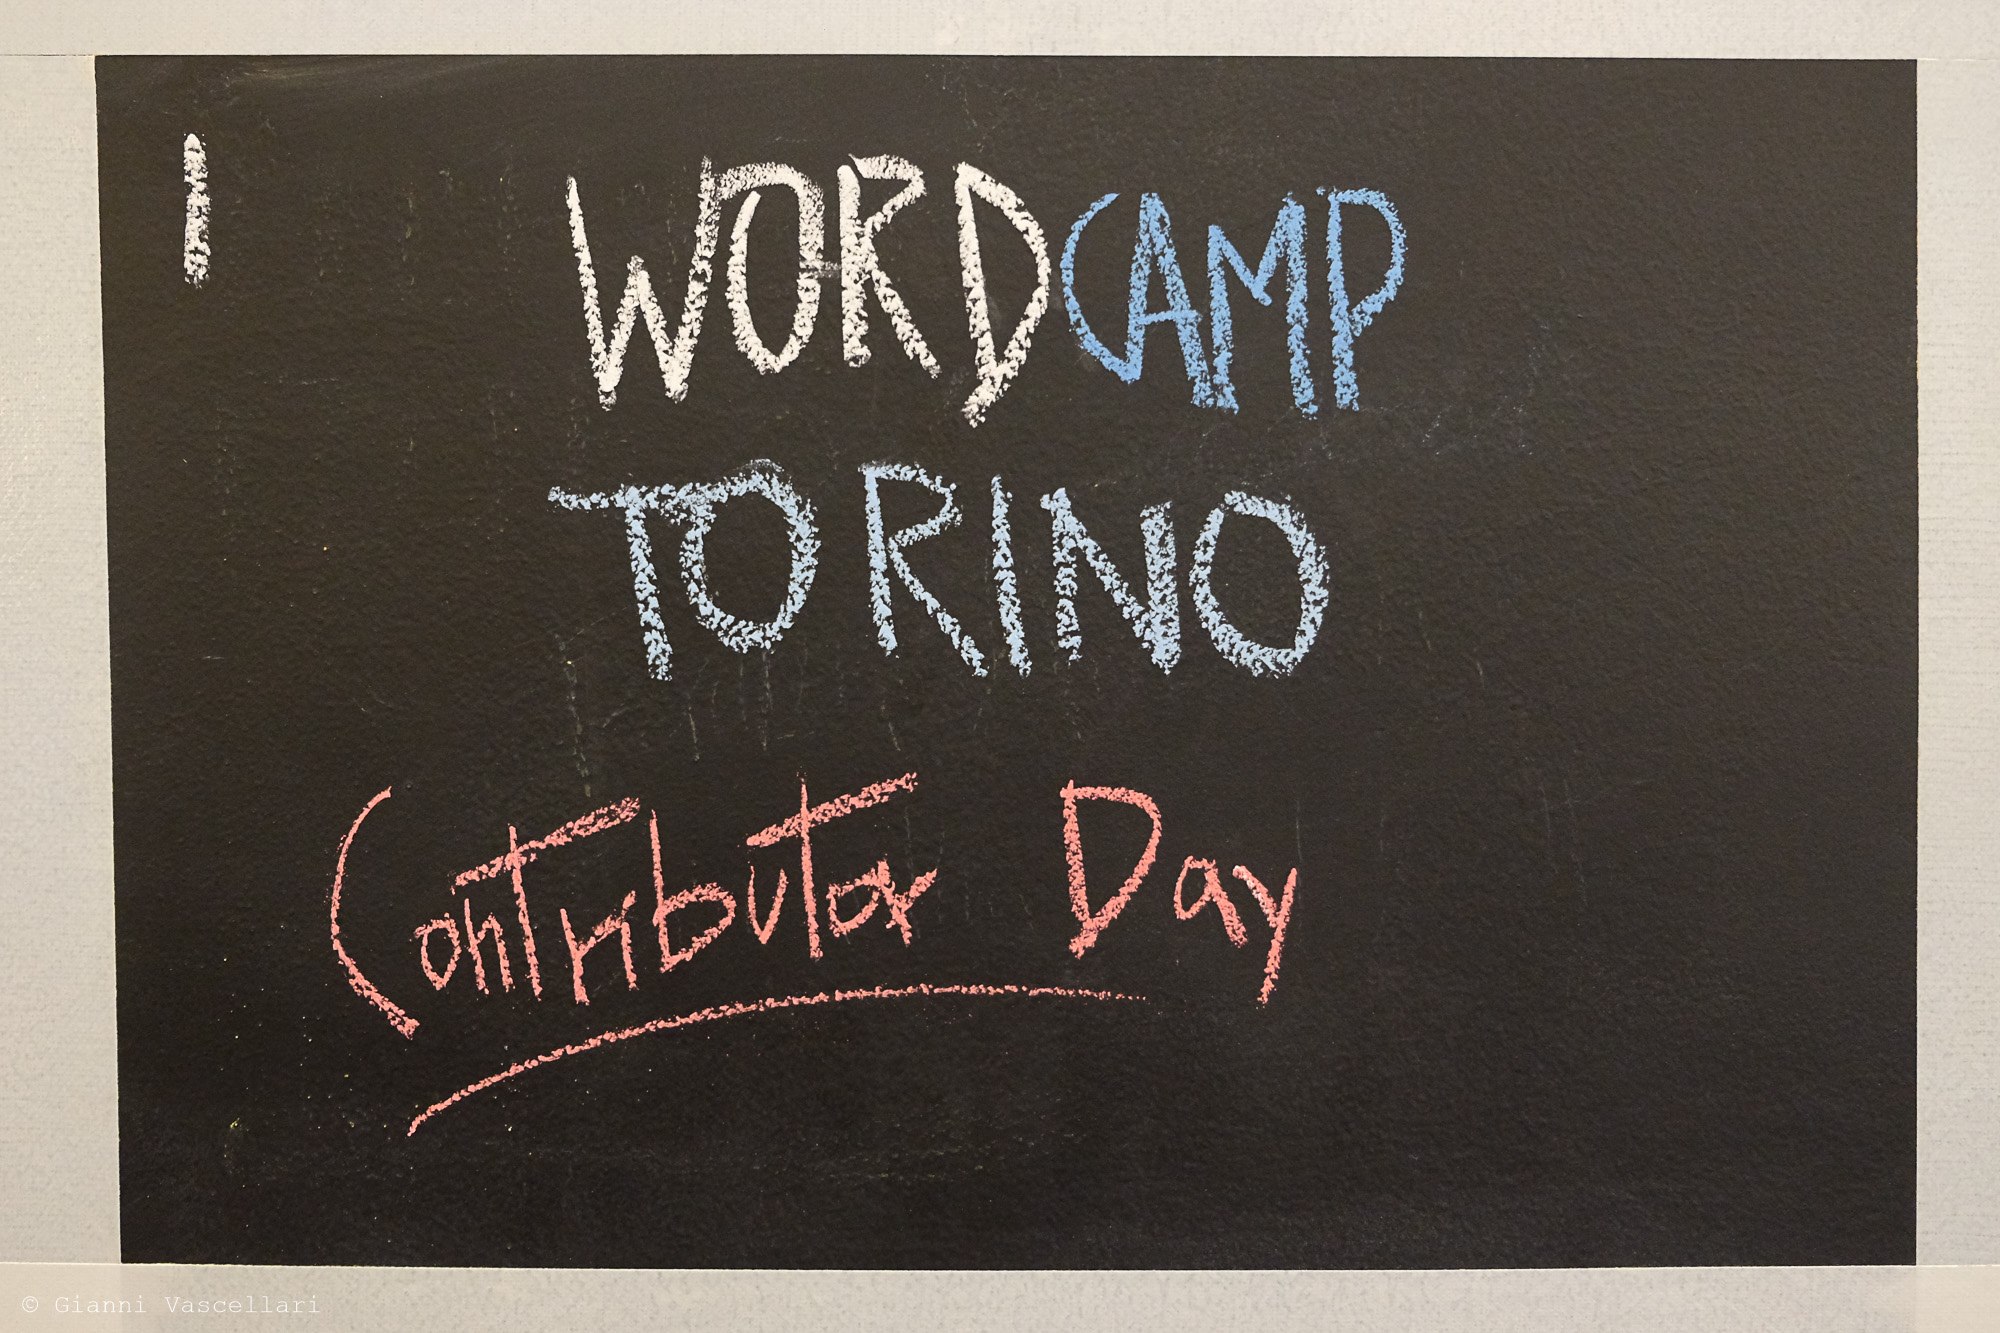 I
WORDCAMP
TORINO
Contributor Day
© Gianni Vascellari